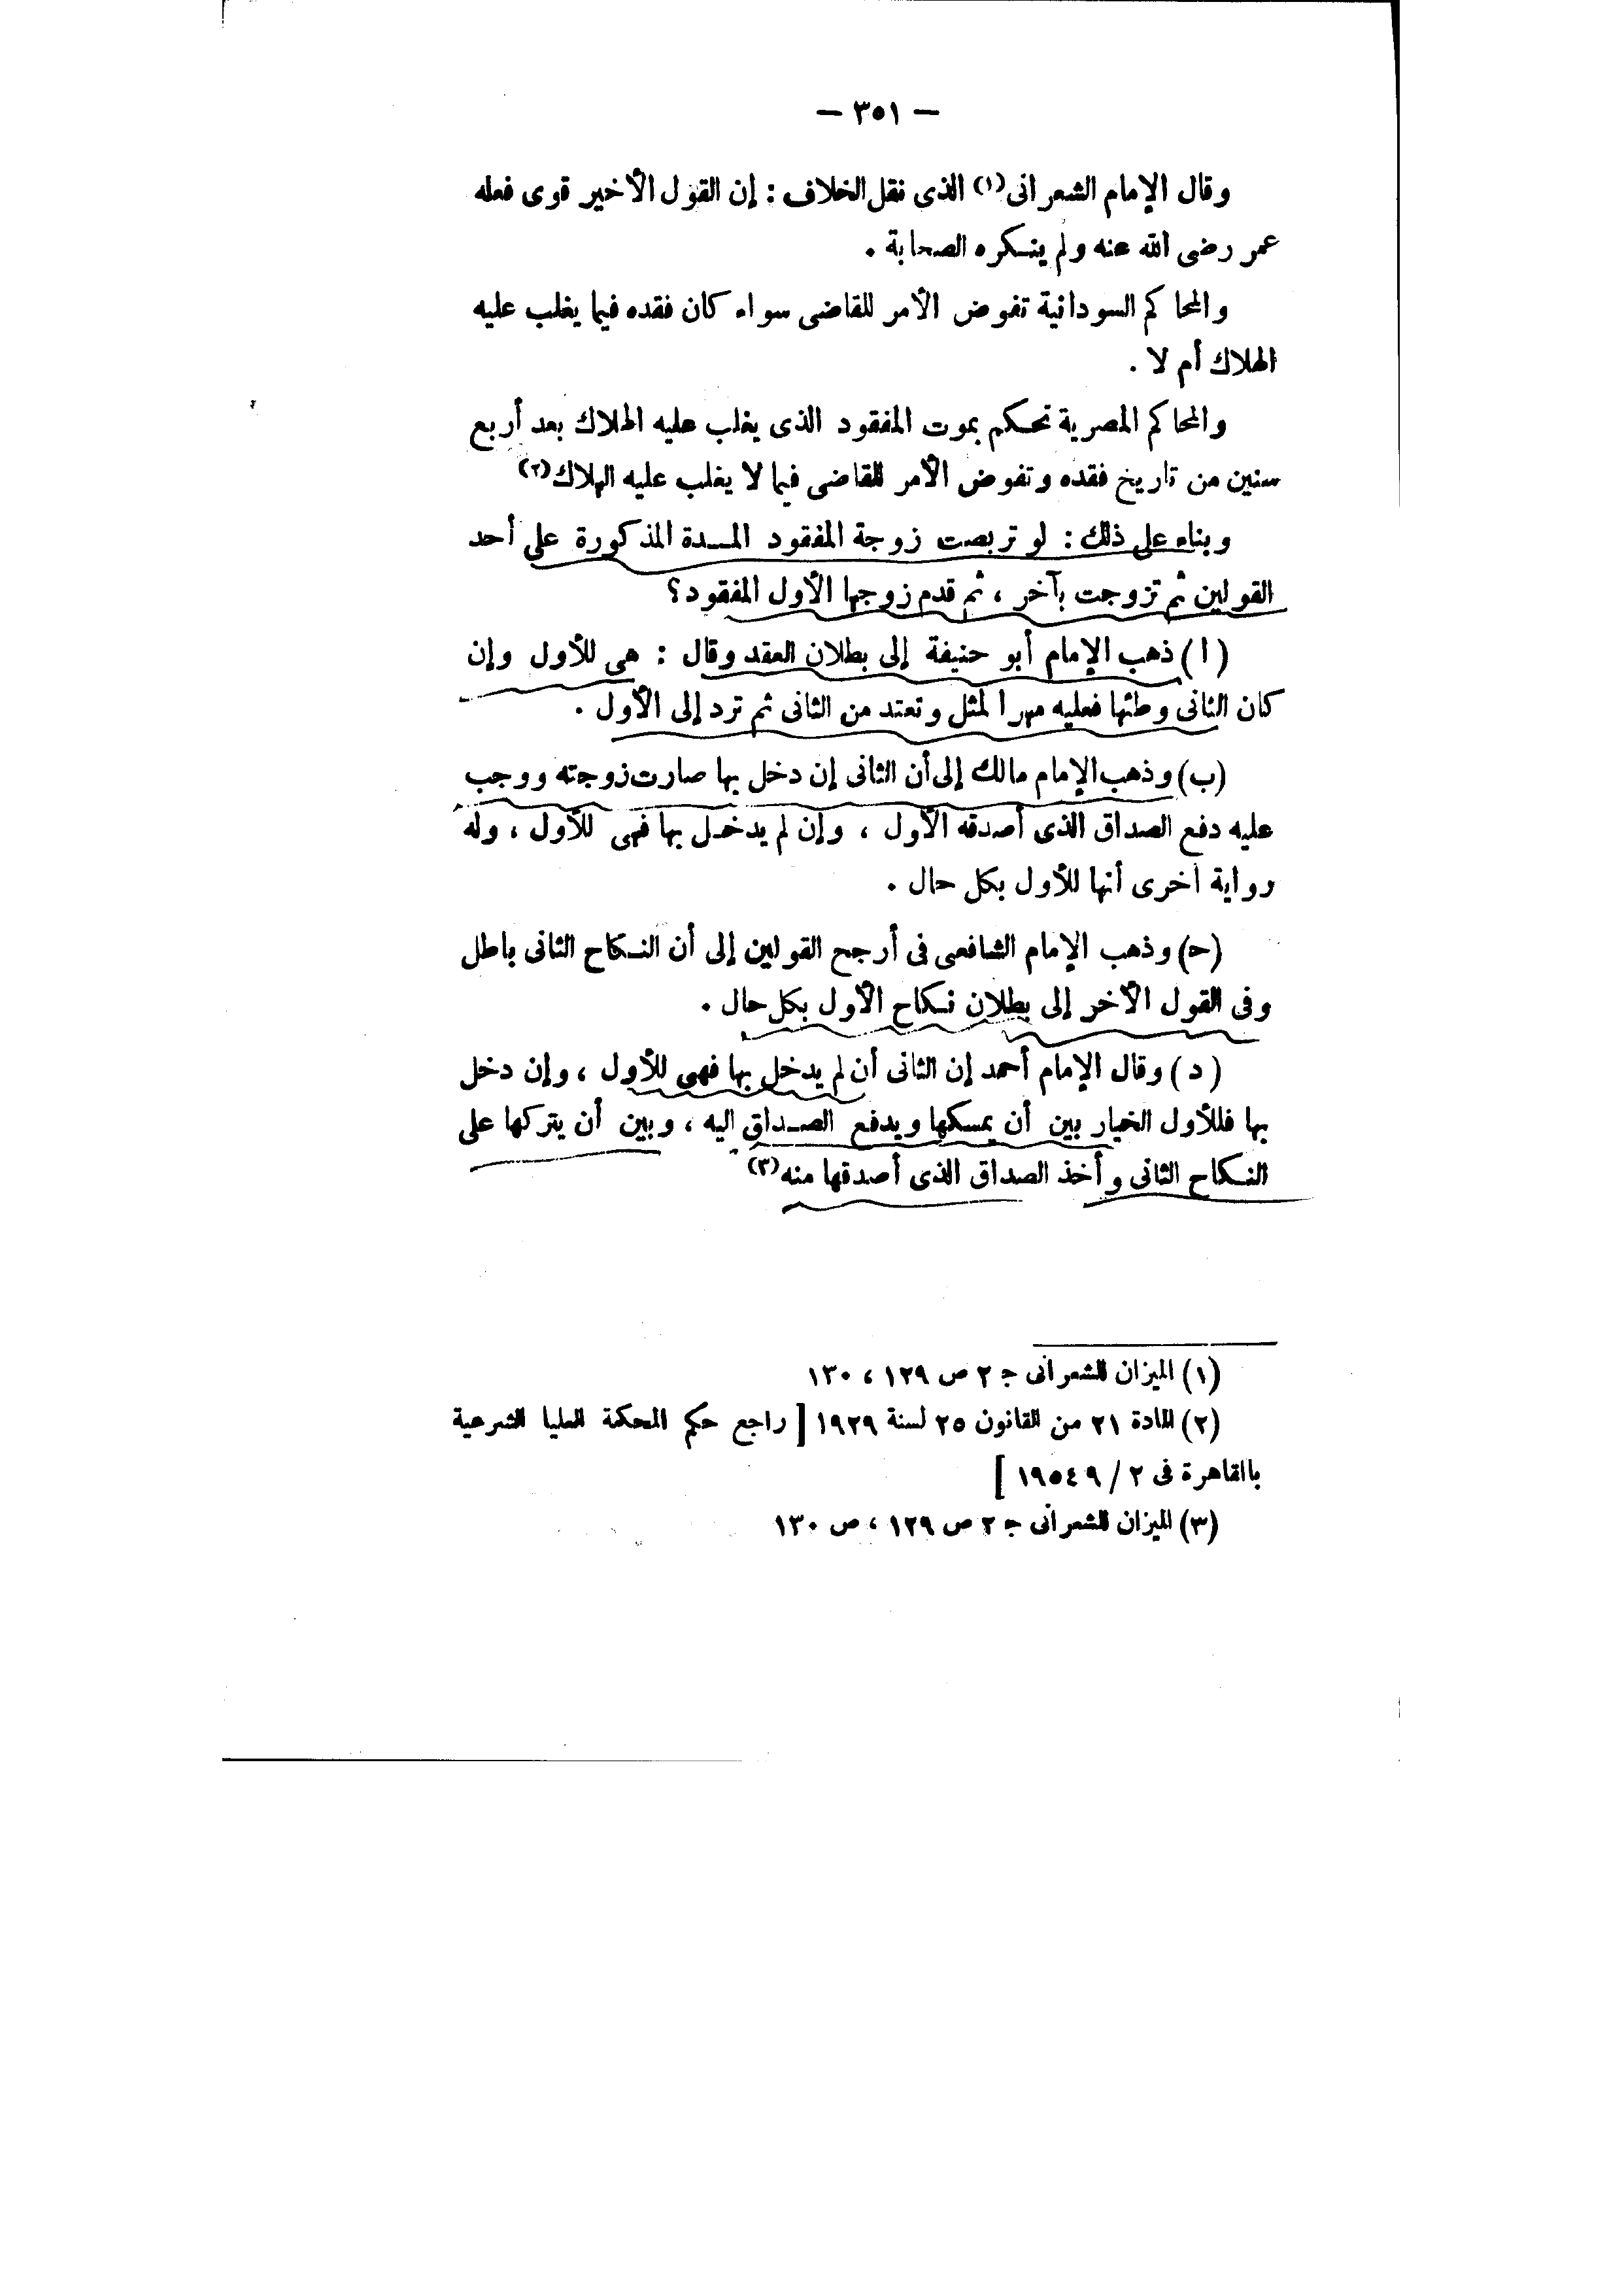 — ٣٥١ —
وقال الإمام الشعرانى(١) الذى نقل الخلاف : إن القول الأخير قوى فعله
عمر رضى الله عنه ولم ينكره الصحابة .
والمحاكم السودانية تفوض الأمر للقاضى سواء كان فقده فيما يغلب عليه
الهلاك أم لا .
والمحاكم المصرية تحكم بموت المفقود الذى يغلب عليه الهلاك بعد أربع
سنين من تاريخ فقده وتفوض الأمر للقاضى فيما لا يغلب عليه الهلاك(٢)
وبناء على ذلك : لو تربصت زوجة المفقود المدة المذكورة على أحد
القولين ثم تزوجت بآخر ، ثم قدم زوجها الأول المفقود؟
(ا) ذهب الإمام أبو حنيفة إلى بطلان العقد وقال : هى للأول وإن
كان الثانى وطئها فعليه مهرا لمثل وتعتد من الثانى ثم ترد إلى الأول .
(ب) وذهب الإمام مالك إلى أن الثانى إن دخل بها صارت زوجته ووجب
عليه دفع الصداق الذى أصدقه الأول ، وإن لم يدخل بها فهى للأول ، وله
رواية أخرى أنها للأول بكل حال .
(ح) وذهب الإمام الشافعى فى أرجح القولين إلى أن النكاح الثانى باطل
وفى القول الآخر إلى بطلان نكاح الأول بكل حال .
(د) وقال الإمام أحمد إن الثانى أن لم يدخل بها فهى للأول ، وإن دخل
بها فللأول الخيار بين أن يمسكها ويدفع الصداق اليه ، وبين أن يتركها على
النكاح الثانى وأخذ الصداق الذى أصدقها منه(٣)
(١) الميزان للشعرانى ج ٢ ص ١٢٩ ، ١٣٠
(٢) المادة ٢١ من القانون ٢٥ لسنة ١٩٢٩ [ راجع حكم المحكمة العليا الشرعية
بالقاهرة فى ٢ / ١٩٥٤٩ ]
(٣) الميزان للشعرانى ج ٢ ص ١٢٩ ، ص ١٣٠